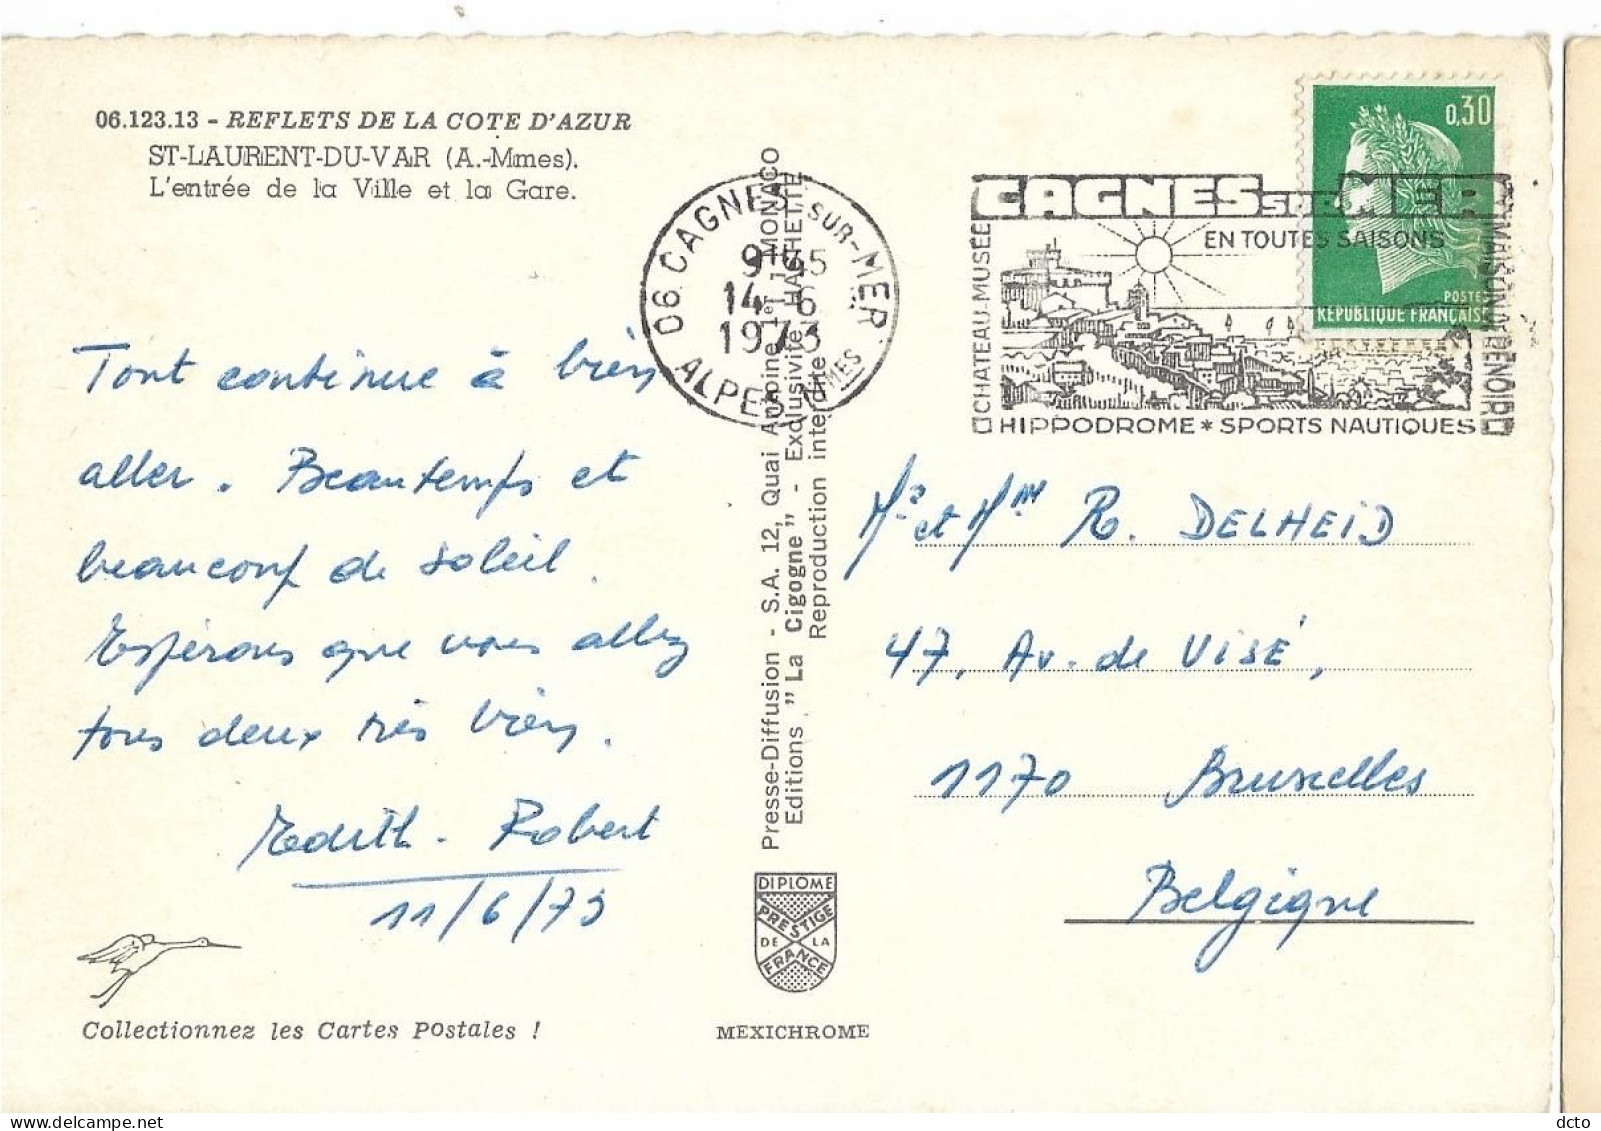 06.123.13 - REFLETS DE LA COTE D'AZUR
ST-LAURENT-DU-VAR (A.-Mmes).
L'entrée de la Ville et la Gare.
Tout continue à bien
aller. Beau temps et
beaucoup de soleil.
Espérons que vous allez
tous deux très bien.
Edith - Robert
11/6/73
Collectionnez les Cartes Postales !
Presse-Diffusion - S.A. 12, Quai Antoine 1er MONACO
Editions "La Cigogne" - Exclusivité HACHETTE
Reproduction interdite
DIPLOME
PRESTIGE
DE LA
FRANCE
MEXICHROME
06 CAGNES SUR-MER
9H45
14-6
1973
ALPES-MMES
CAGNES SUR MER
EN TOUTES SAISONS
CHATEAU-MUSÉE
MAISON DE RENOIR
HIPPODROME * SPORTS NAUTIQUES
0,30
POSTES
REPUBLIQUE FRANÇAISE
Mr et Mme R. DELHEID
47, Av. de VISÉ,
1170 Bruxelles
Belgique
delcampe.net
dcto